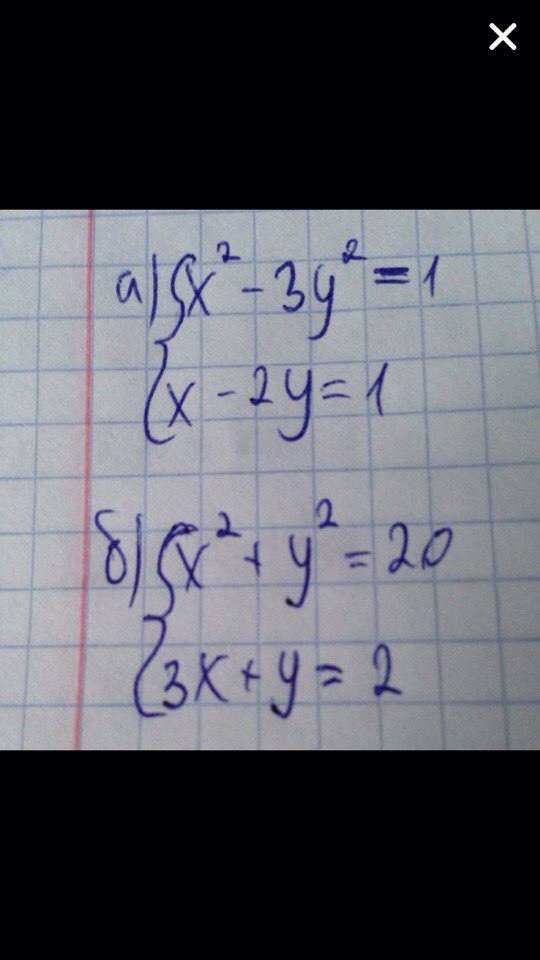 а) { x² - 3y² = 1
x - 2y = 1
б) { x² + y² = 20
3x + y = 2